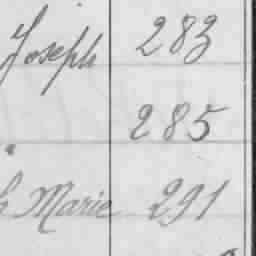 Joseph 283
" 285
h Marie 291